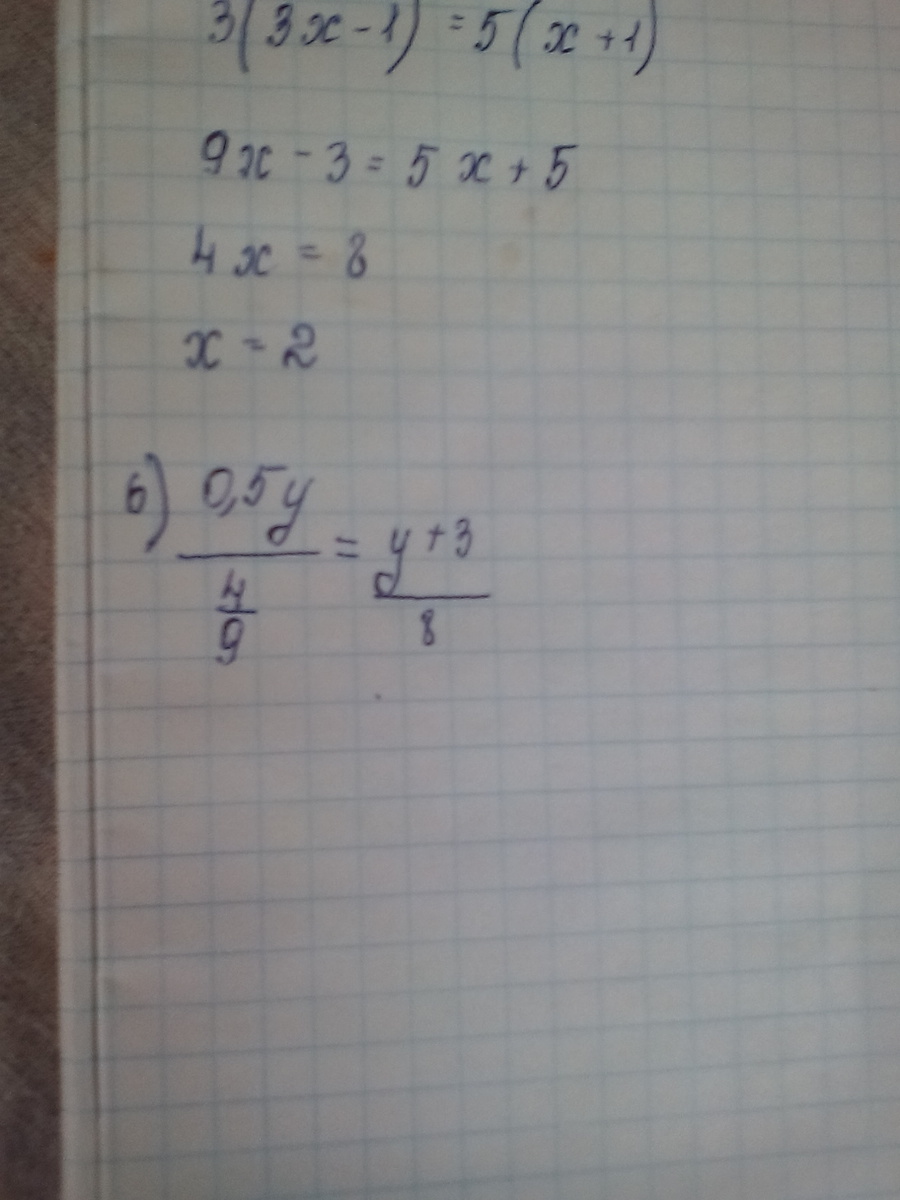 3(3x-1) = 5(x+1)
9x - 3 = 5x + 5
4x = 8
x = 2
б) 0,5y / (4/9) = (y+3) / 8